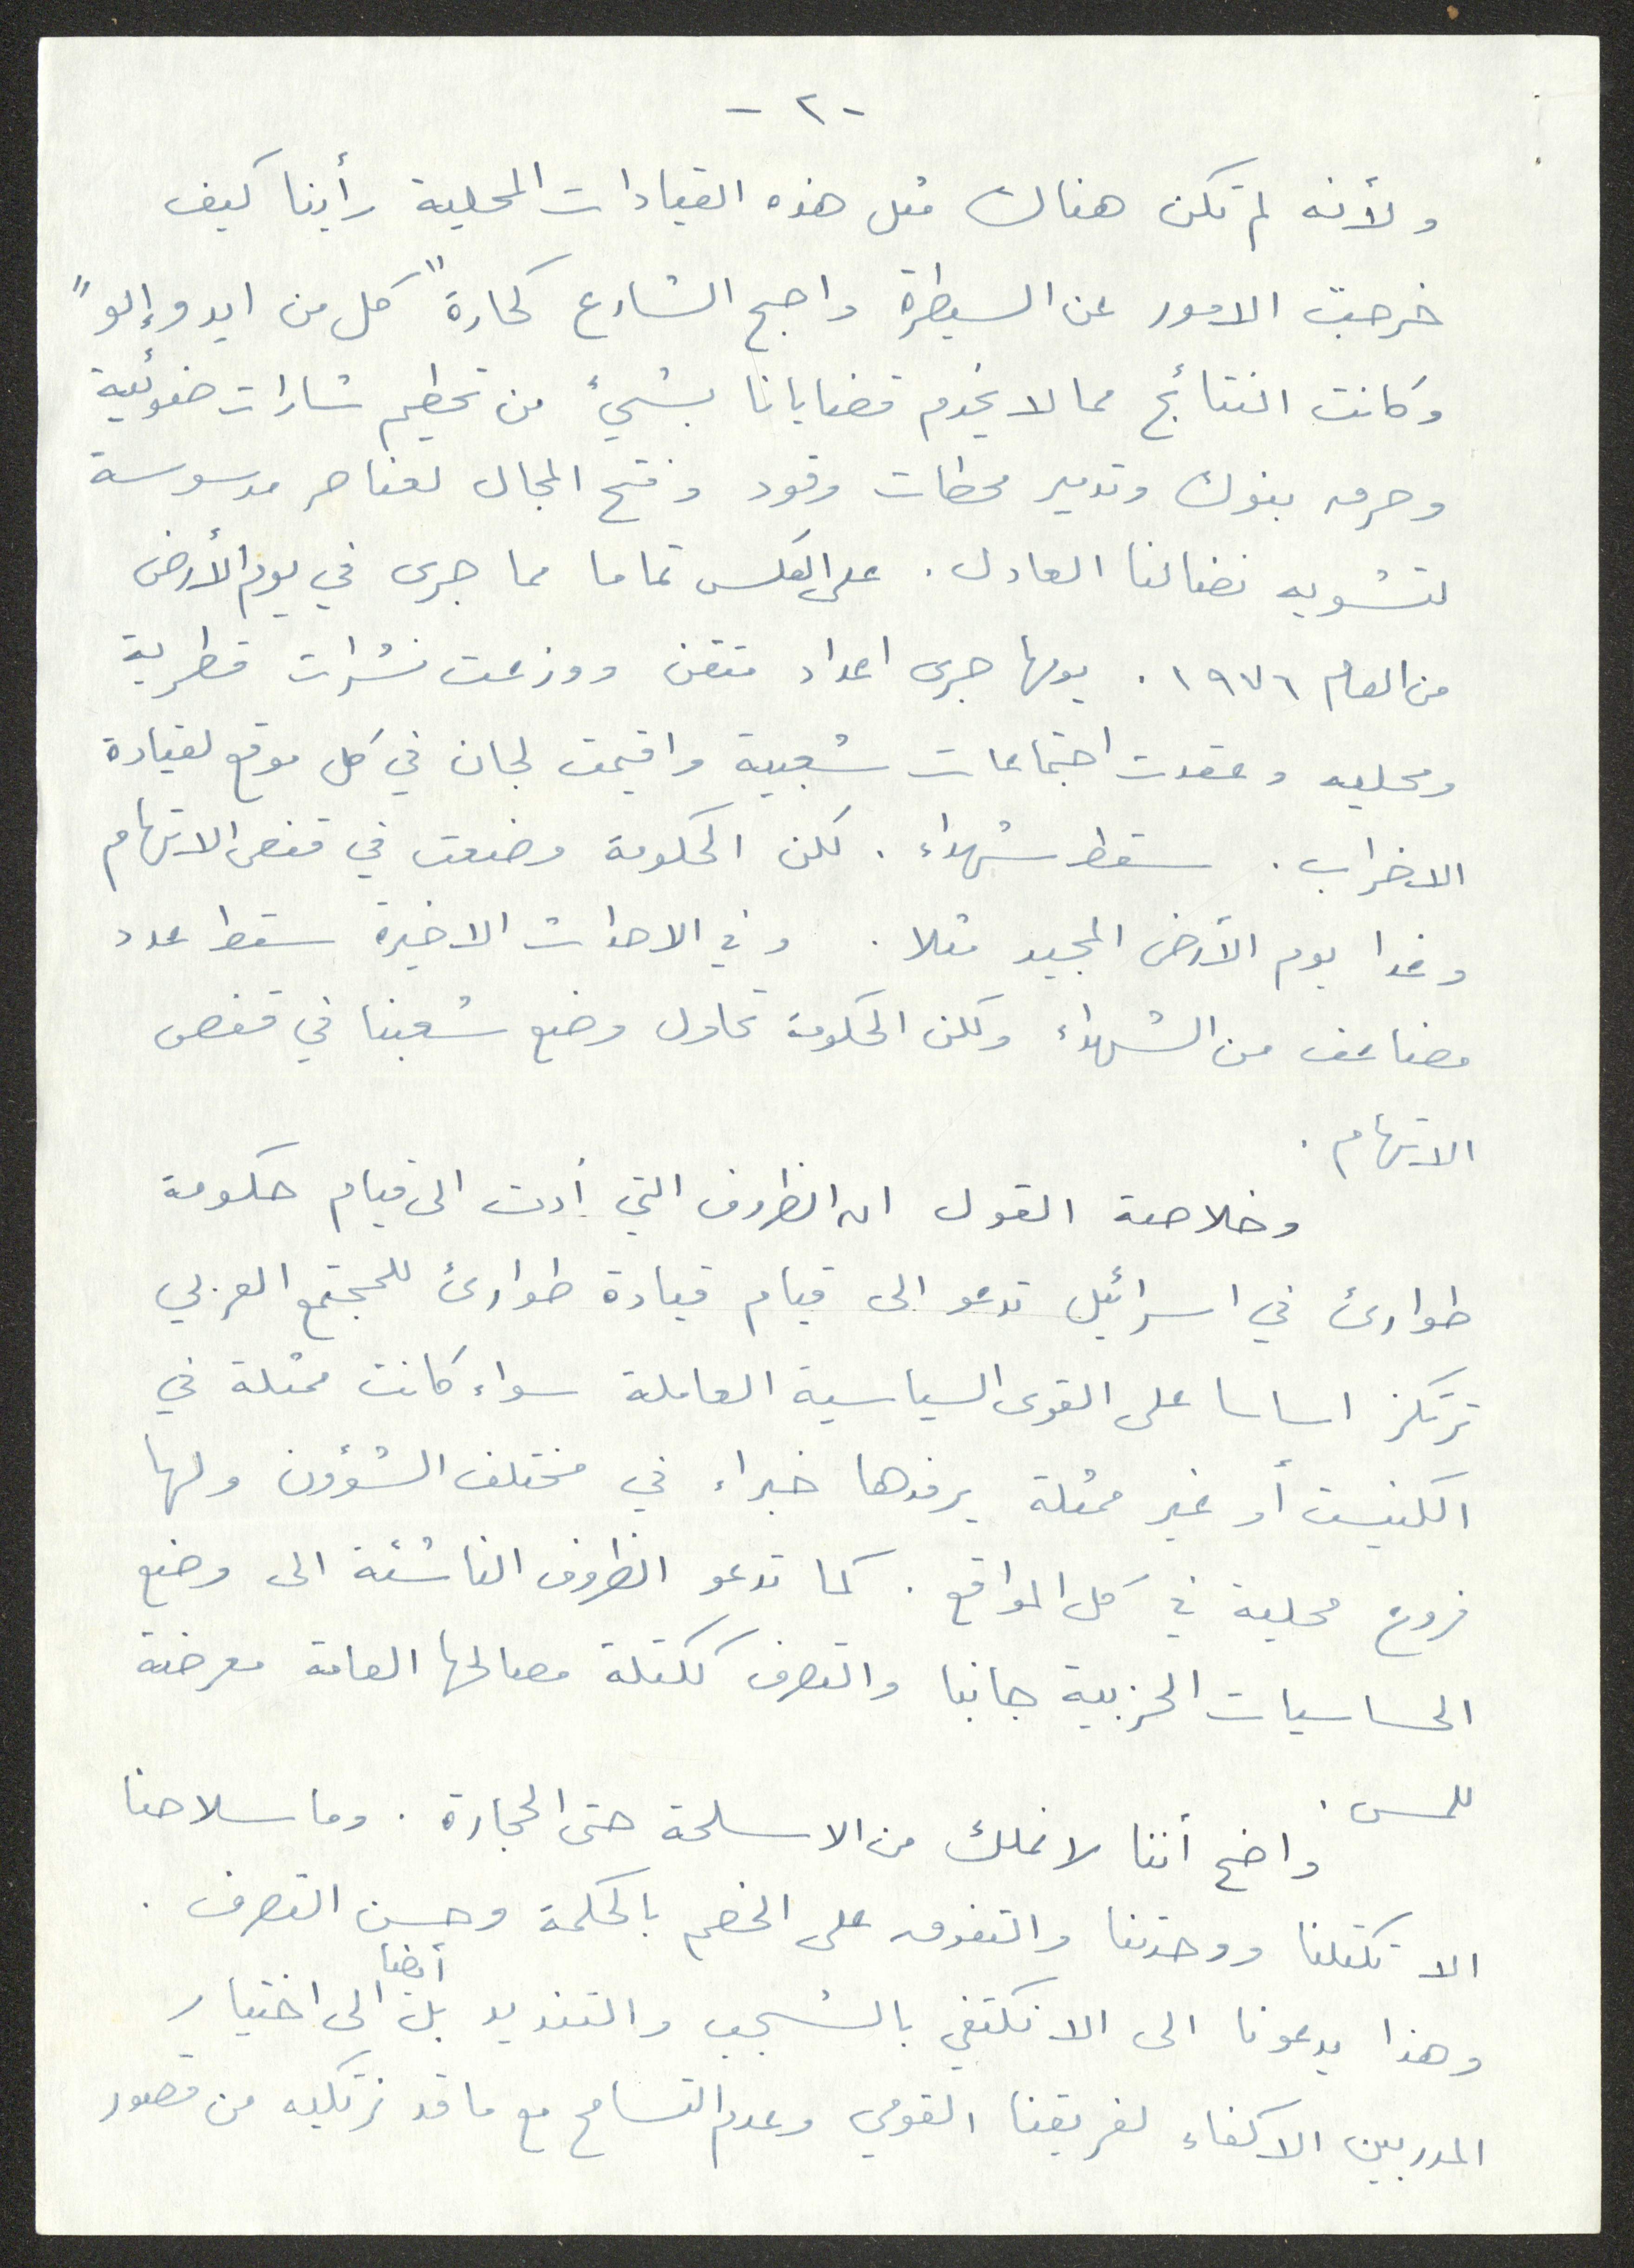 -٢-
ولأنه لم تكن هناك مثل هذه القيادات المحلية رأينا كيف
خرجت الامور عن السيطرة واصبح الشارع كحارة "كل من ايدو إلو"
وكانت النتائج مما لا يخدم قضايانا بشيء من تحطيم شارات ضوئية
وحرق بنوك وتدمير محطات وقود وفتح المجال لعناصر مدسوسة
لتشويه نضالنا العادل. على العكس تماما مما جرى في يوم الأرض
من العام ١٩٧٦. يومها جرى اعداد متقن ووزعت نشرات قطرية
ومحليه وعقدت اجتماعات شعبية واقيمت لجان في كل موقع لقيادة
الاضراب. سقط شهداء. لكن الحكومة وضعت في قفص الاتهام
وغدا يوم الأرض المجيد مثلا. وفي الاحداث الاخيرة سقط عدد
مضاعف من الشهداء ولكن الحكومة تحاول وضع شعبنا في قفص
الاتهام.
وخلاصة القول ان الظروف التي أدت الى قيام حكومة
طوارئ في اسرائيل تدعو الى قيام قيادة طوارئ للمجتمع العربي
ترتكز اساسا على القوى السياسية العاملة سواء كانت ممثلة في
الكنيست أو غير ممثلة يرفدها خبراء في مختلف الشؤون ولها
فروع محلية في كل المواقع. كما تدعو الظروف الناشئة الى وضع
الحساسيات الحزبية جانبا والتصرف ككتلة مصالحها العامة معرضة
للمس.
واضح أننا لا نملك من الاسلحة حتى الحجارة. وما سلاحنا
الا تكتلنا ووحدتنا والتفوق على الخصم بالحكمة وحسن التصرف.
وهذا يدعونا الى الا نكتفي بالشجب والتنديد بل أيضا الى اختيار
المدربين الاكفاء لفريقنا القومي وعدم التسامح مع ما قد نرتكبه من قصور